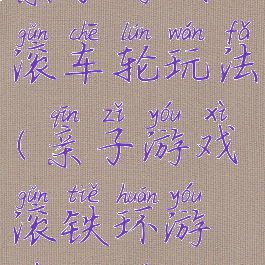 gǔn chē lún wán fǎ
滚车轮玩法
qīn zǐ yóu xì
(亲子游戏
gǔn tiě huán yóu
滚铁环游